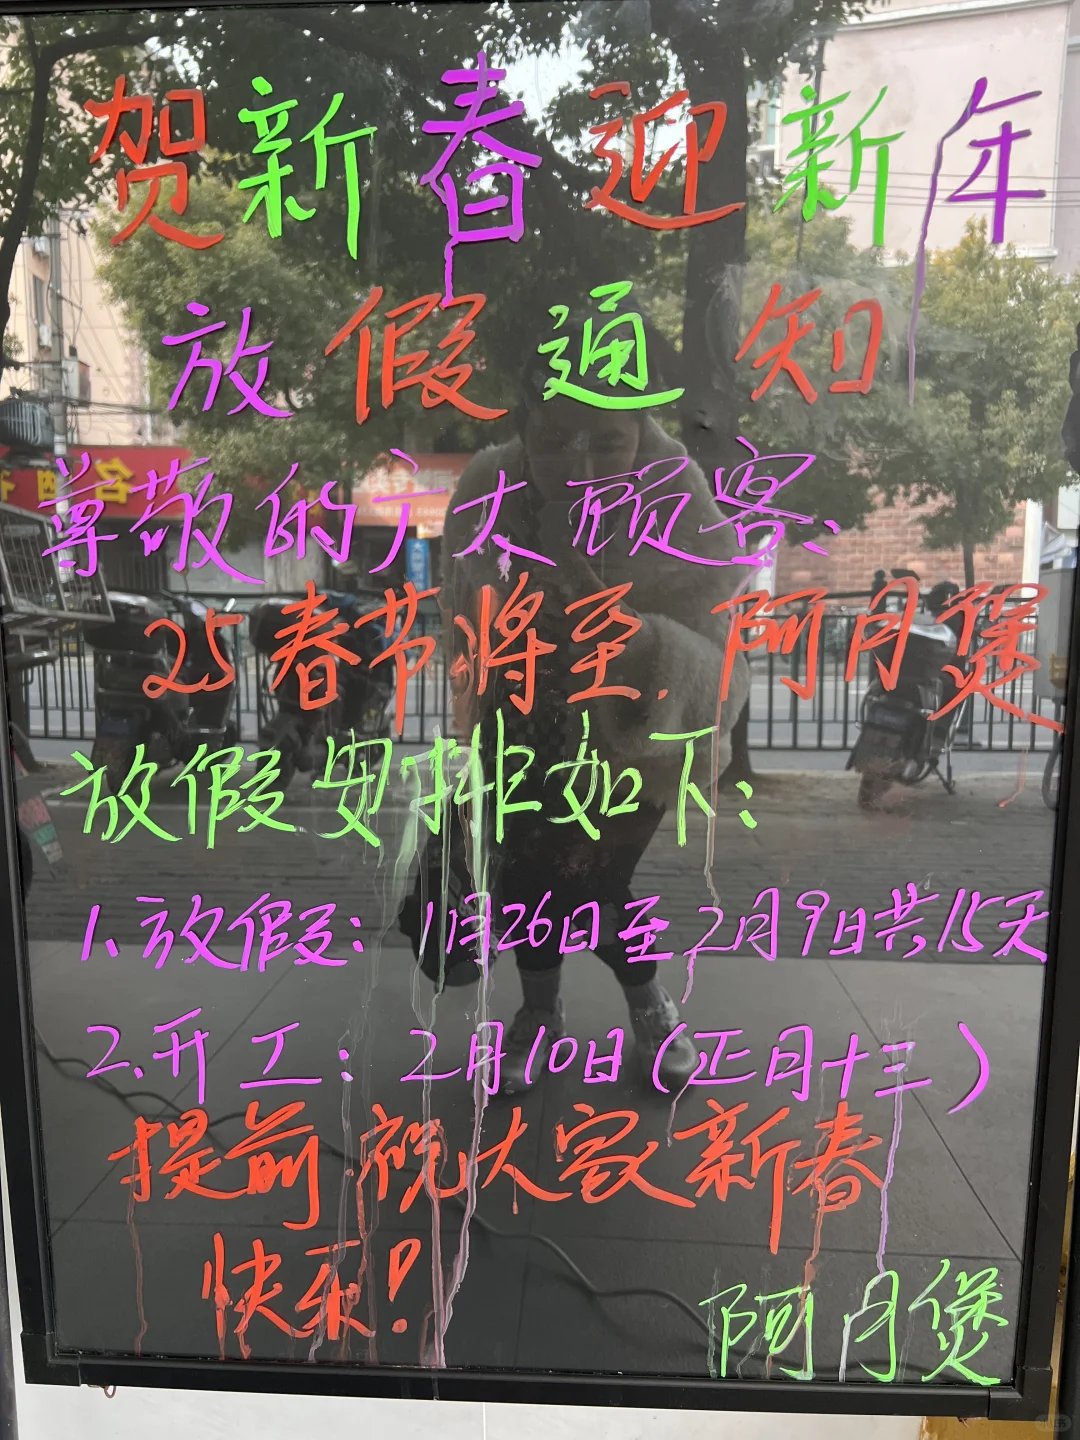 贺新春迎新年
放假通知
尊敬的广大顾客:
25春节将至.阿月煲
放假安排如下:
1.放假: 1月26日至2月9日共15天
2.开工: 2月10日(正月十三)
提前祝大家新春
快乐!
阿月煲